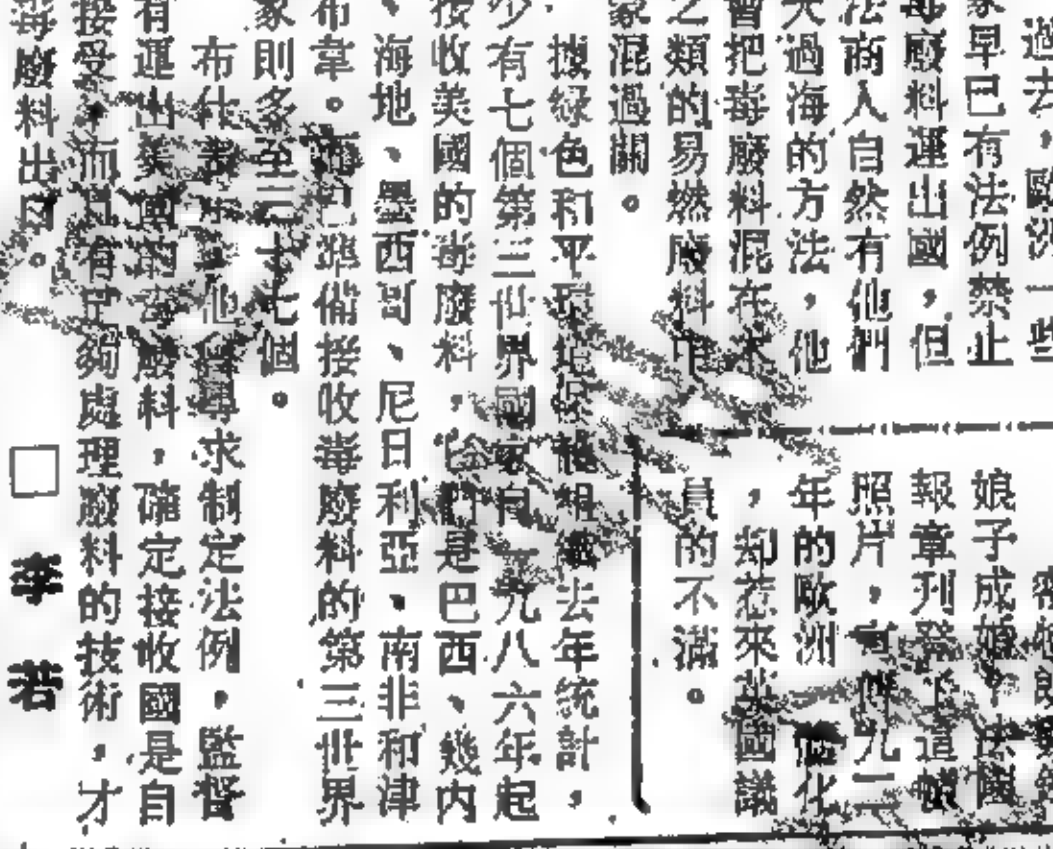 過去，歐洲一些
家早已有法例禁止
毒廢料運出國，但
法商人自然有他們
天過海的方法，他
會把毒廢料混在木
之類的易燃廢料中
蒙混過關。
據綠色和平環境保護組織去年統計，
少有七個第三世界國家自一九八六年起
接收美國的毒廢料，它們是巴西、幾內
、海地、墨西哥、尼日利亞、南非和津
布韋。而已準備接收毒廢料的第三世界
家則多至三十七個。
布什表示，他會尋求制定法例，監督
有運出美國的毒廢料，確定接收國是自
接受，而且有足夠處理廢料的技術，才
毒廢料出口。
□ 李若
娘子成娘，法國
報章列發下道
照片，有
年的歐洲 化
，卻惹來 國議
員的不滿。